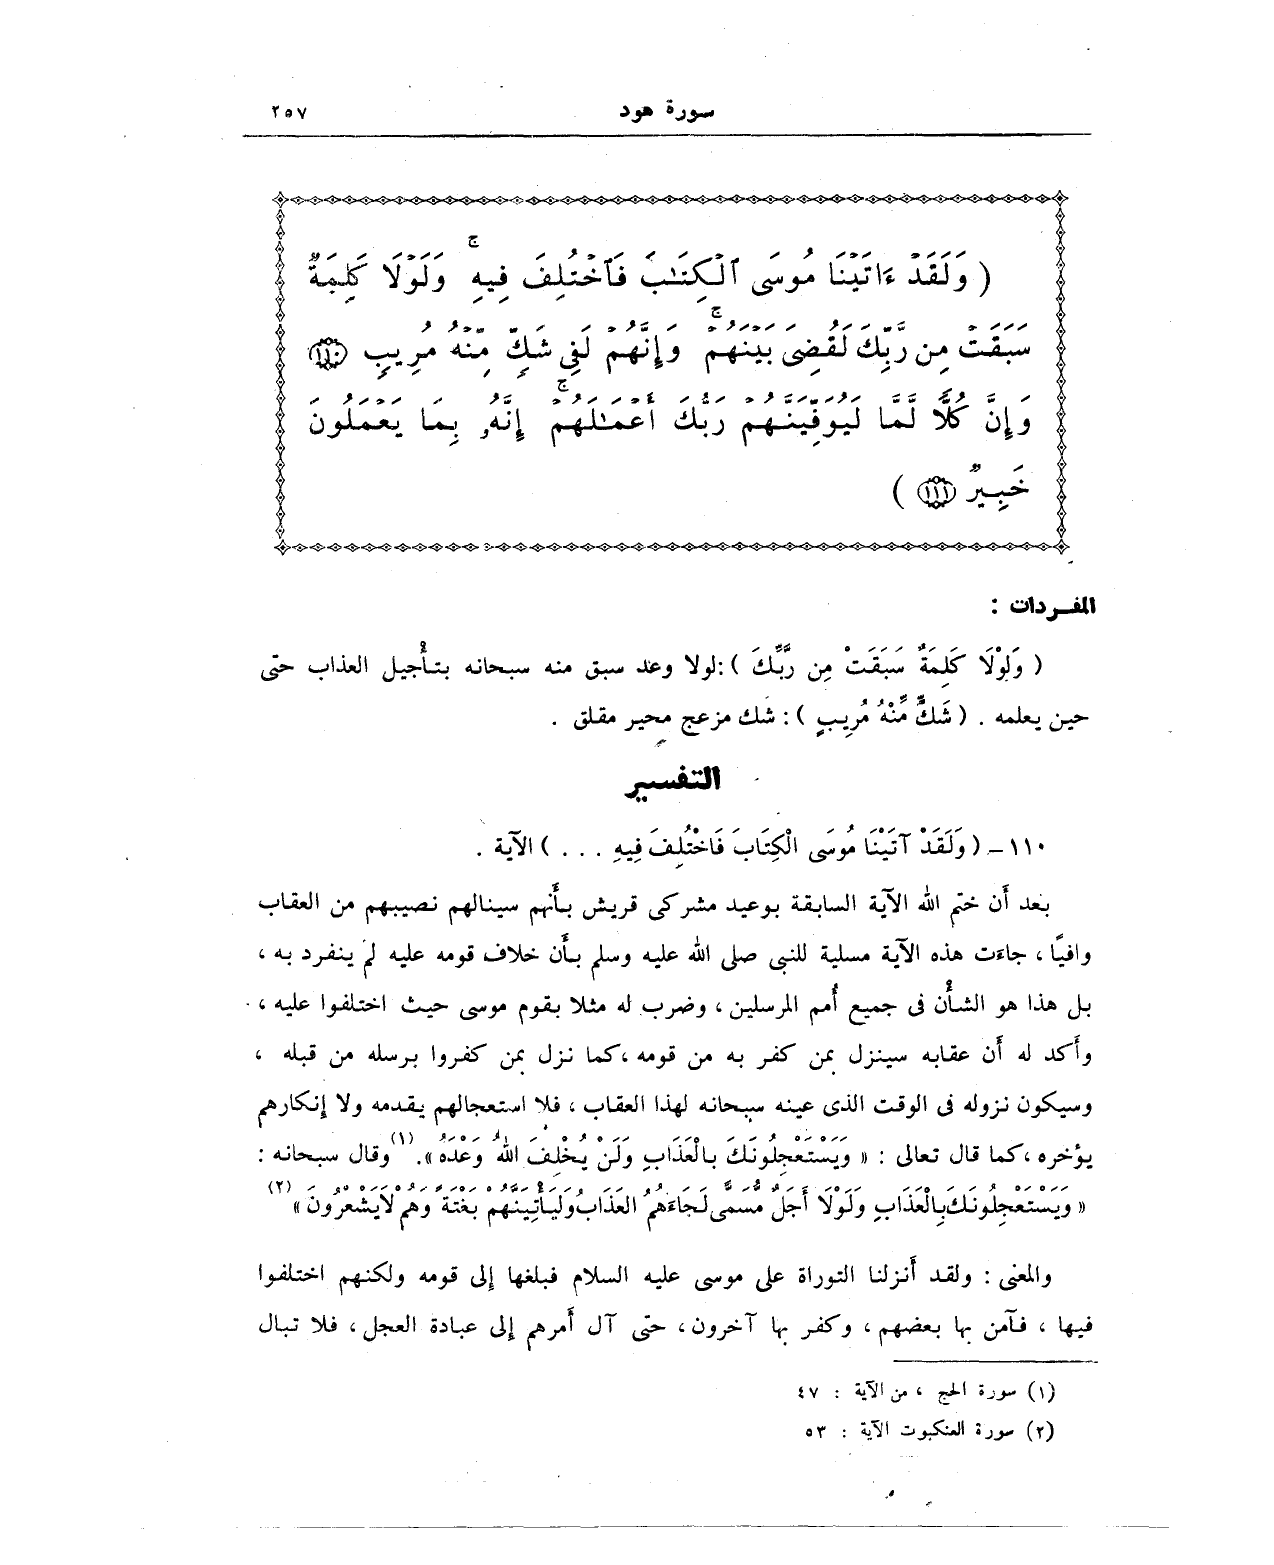 سورة هود ٢٥٧
( وَلَقَدْ ءَاتَيْنَا مُوسَى ٱلْكِتَٰبَ فَٱخْتُلِفَ فِيهِ ۚ وَلَوْلَا كَلِمَةٌ
سَبَقَتْ مِن رَّبِّكَ لَقُضِىَ بَيْنَهُمْ ۚ وَإِنَّهُمْ لَفِى شَكٍّ مِّنْهُ مُرِيبٍ ١١٠
وَإِنَّ كُلًّا لَّمَّا لَيُوَفِّيَنَّهُمْ رَبُّكَ أَعْمَٰلَهُمْ ۚ إِنَّهُۥ بِمَا يَعْمَلُونَ
خَبِيرٌ ١١١ )
المفردات :
( وَلَوْلَا كَلِمَةٌ سَبَقَتْ مِن رَّبِّكَ ) : لولا وعد سبق منه سبحانه بتأجيل العذاب حتى
حين يعلمه . ( شَكٍّ مِّنْهُ مُرِيبٍ ) : شك مزعج محير مقلق .
التفسير
١١٠ – ( وَلَقَدْ آتَيْنَا مُوسَى الْكِتَابَ فَاخْتُلِفَ فِيهِ . . . ) الآية .
بعد أن ختم الله الآية السابقة بوعيد مشركى قريش بأنهم سينالهم نصيبهم من العقاب
وافيًا ، جاءت هذه الآية مسلية للنبى صلى الله عليه وسلم بأن خلاف قومه عليه لم ينفرد به ،
بل هذا هو الشأن فى جميع أُمم المرسلين ، وضرب له مثلا بقوم موسى حيث اختلفوا عليه ،
وأكد له أن عقابه سينزل بمن كفر به من قومه ، كما نزل بمن كفروا برسله من قبله ،
وسيكون نزوله فى الوقت الذى عينه سبحانه لهذا العقاب ، فلا استعجالهم يقدمه ولا إنكارهم
يؤخره ، كما قال تعالى : « وَيَسْتَعْجِلُونَكَ بِالْعَذَابِ وَلَنْ يُخْلِفَ اللهُ وَعْدَهُ ».(١) وقال سبحانه :
« وَيَسْتَعْجِلُونَكَ بِالْعَذَابِ وَلَوْلَا أَجَلٌ مُسَمًّى لَجَاءَهُمُ العَذَابُ وَلَيَأْتِيَنَّهُمْ بَغْتَةً وَهُمْ لَا يَشْعُرُونَ » (٢)
والمعنى : ولقد أنزلنا التوراة على موسى عليه السلام فبلغها إلى قومه ولكنهم اختلفوا
فيها ، فآمن بها بعضهم ، وكفر بها آخرون ، حتى آل أمرهم إلى عبادة العجل ، فلا تبال
(١) سورة الحج ، من الآية : ٤٧
(٢) سورة العنكبوت الآية : ٥٣